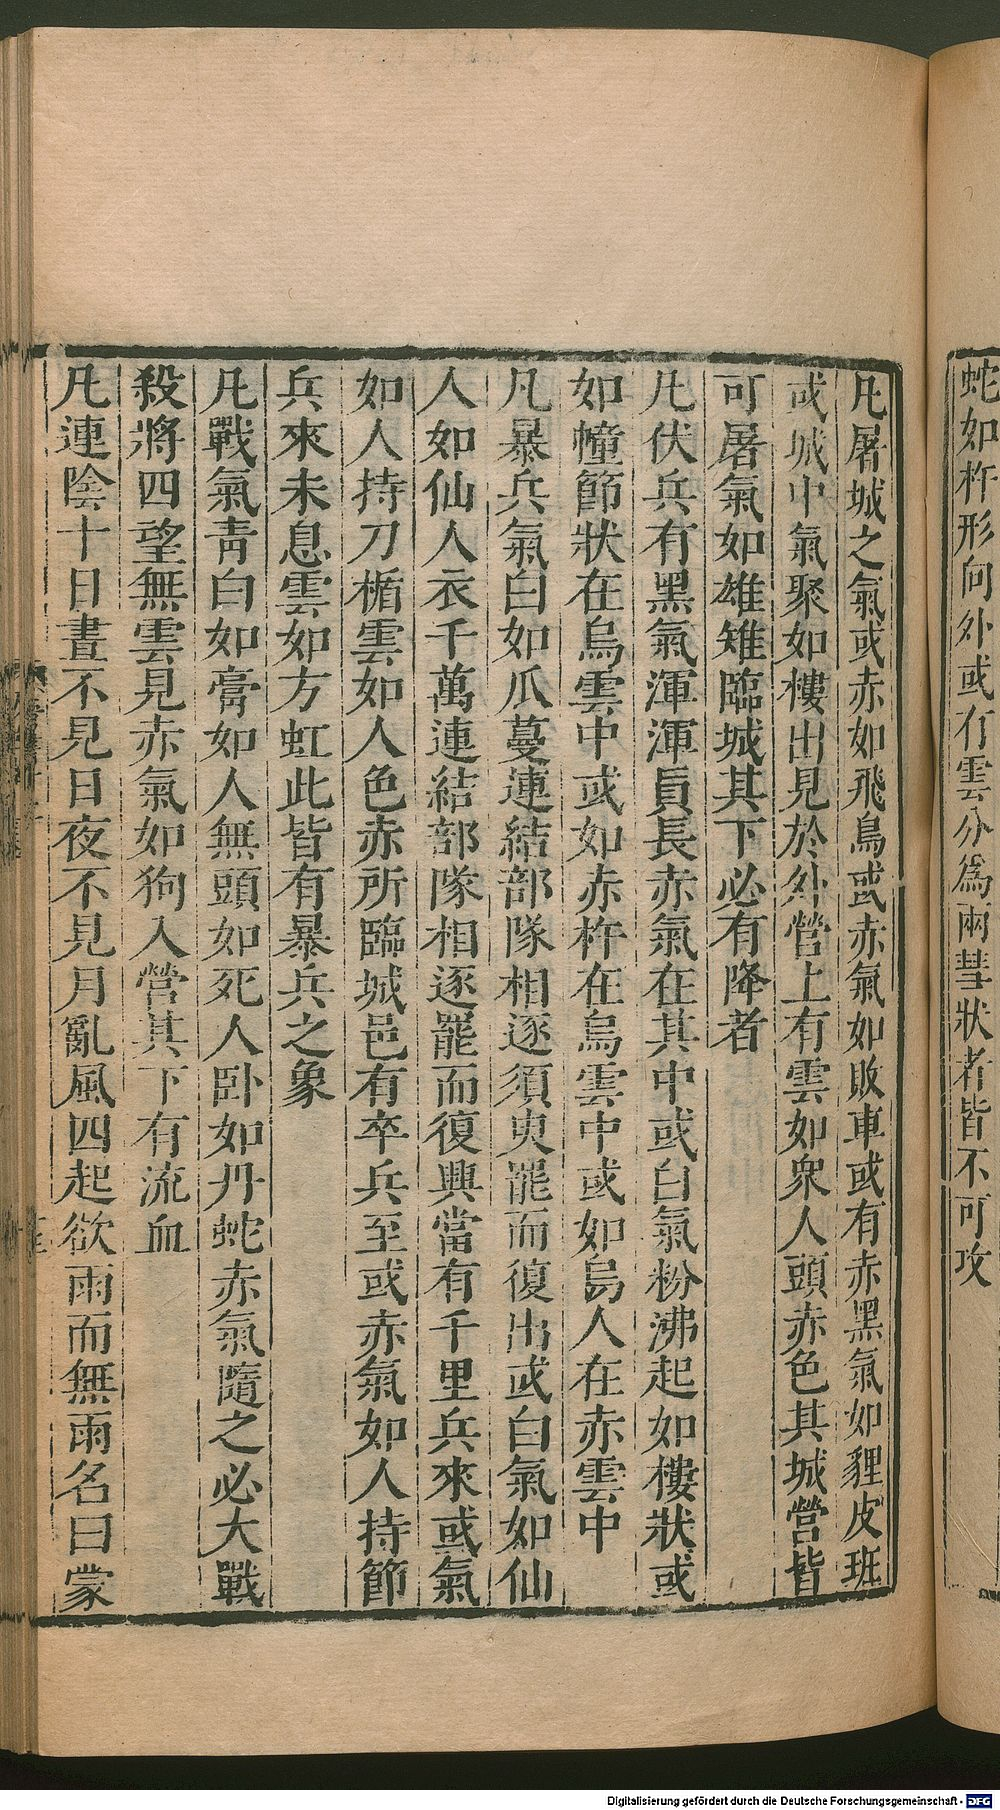 蛇如杵形向外或有雲分爲兩彗狀者皆不可攻
凡屠城之氣或赤如飛鳥或赤氣如敗車或有赤黑氣如貍皮斑
或城中氣聚如樓出見於外營上有雲如衆人頭赤色其城營皆
可屠氣如雄雉臨城其下必有降者
凡伏兵有黑氣渾渾員長赤氣在其中或白氣粉沸起如樓狀或
如幢節狀在烏雲中或如赤杵在烏雲中或如烏人在赤雲中
凡暴兵氣白如瓜蔓連結部隊相逐須臾罷而復出或白氣如仙
人如仙人衣千萬連結部隊相逐罷而復興當有千里兵來或氣
如人持刀楯雲如人色赤所臨城邑有卒兵至或赤氣如人持節
兵來未息雲如方虹此皆有暴兵之象
凡戰氣青白如膏如人無頭如死人卧如丹蛇赤氣隨之必大戰
殺將四望無雲見赤氣如狗入營其下有流血
凡連陰十日晝不見日夜不見月亂風四起欲雨而無雨名曰蒙
Digitalisierung gefördert durch die Deutsche Forschungsgemeinschaft - DFG